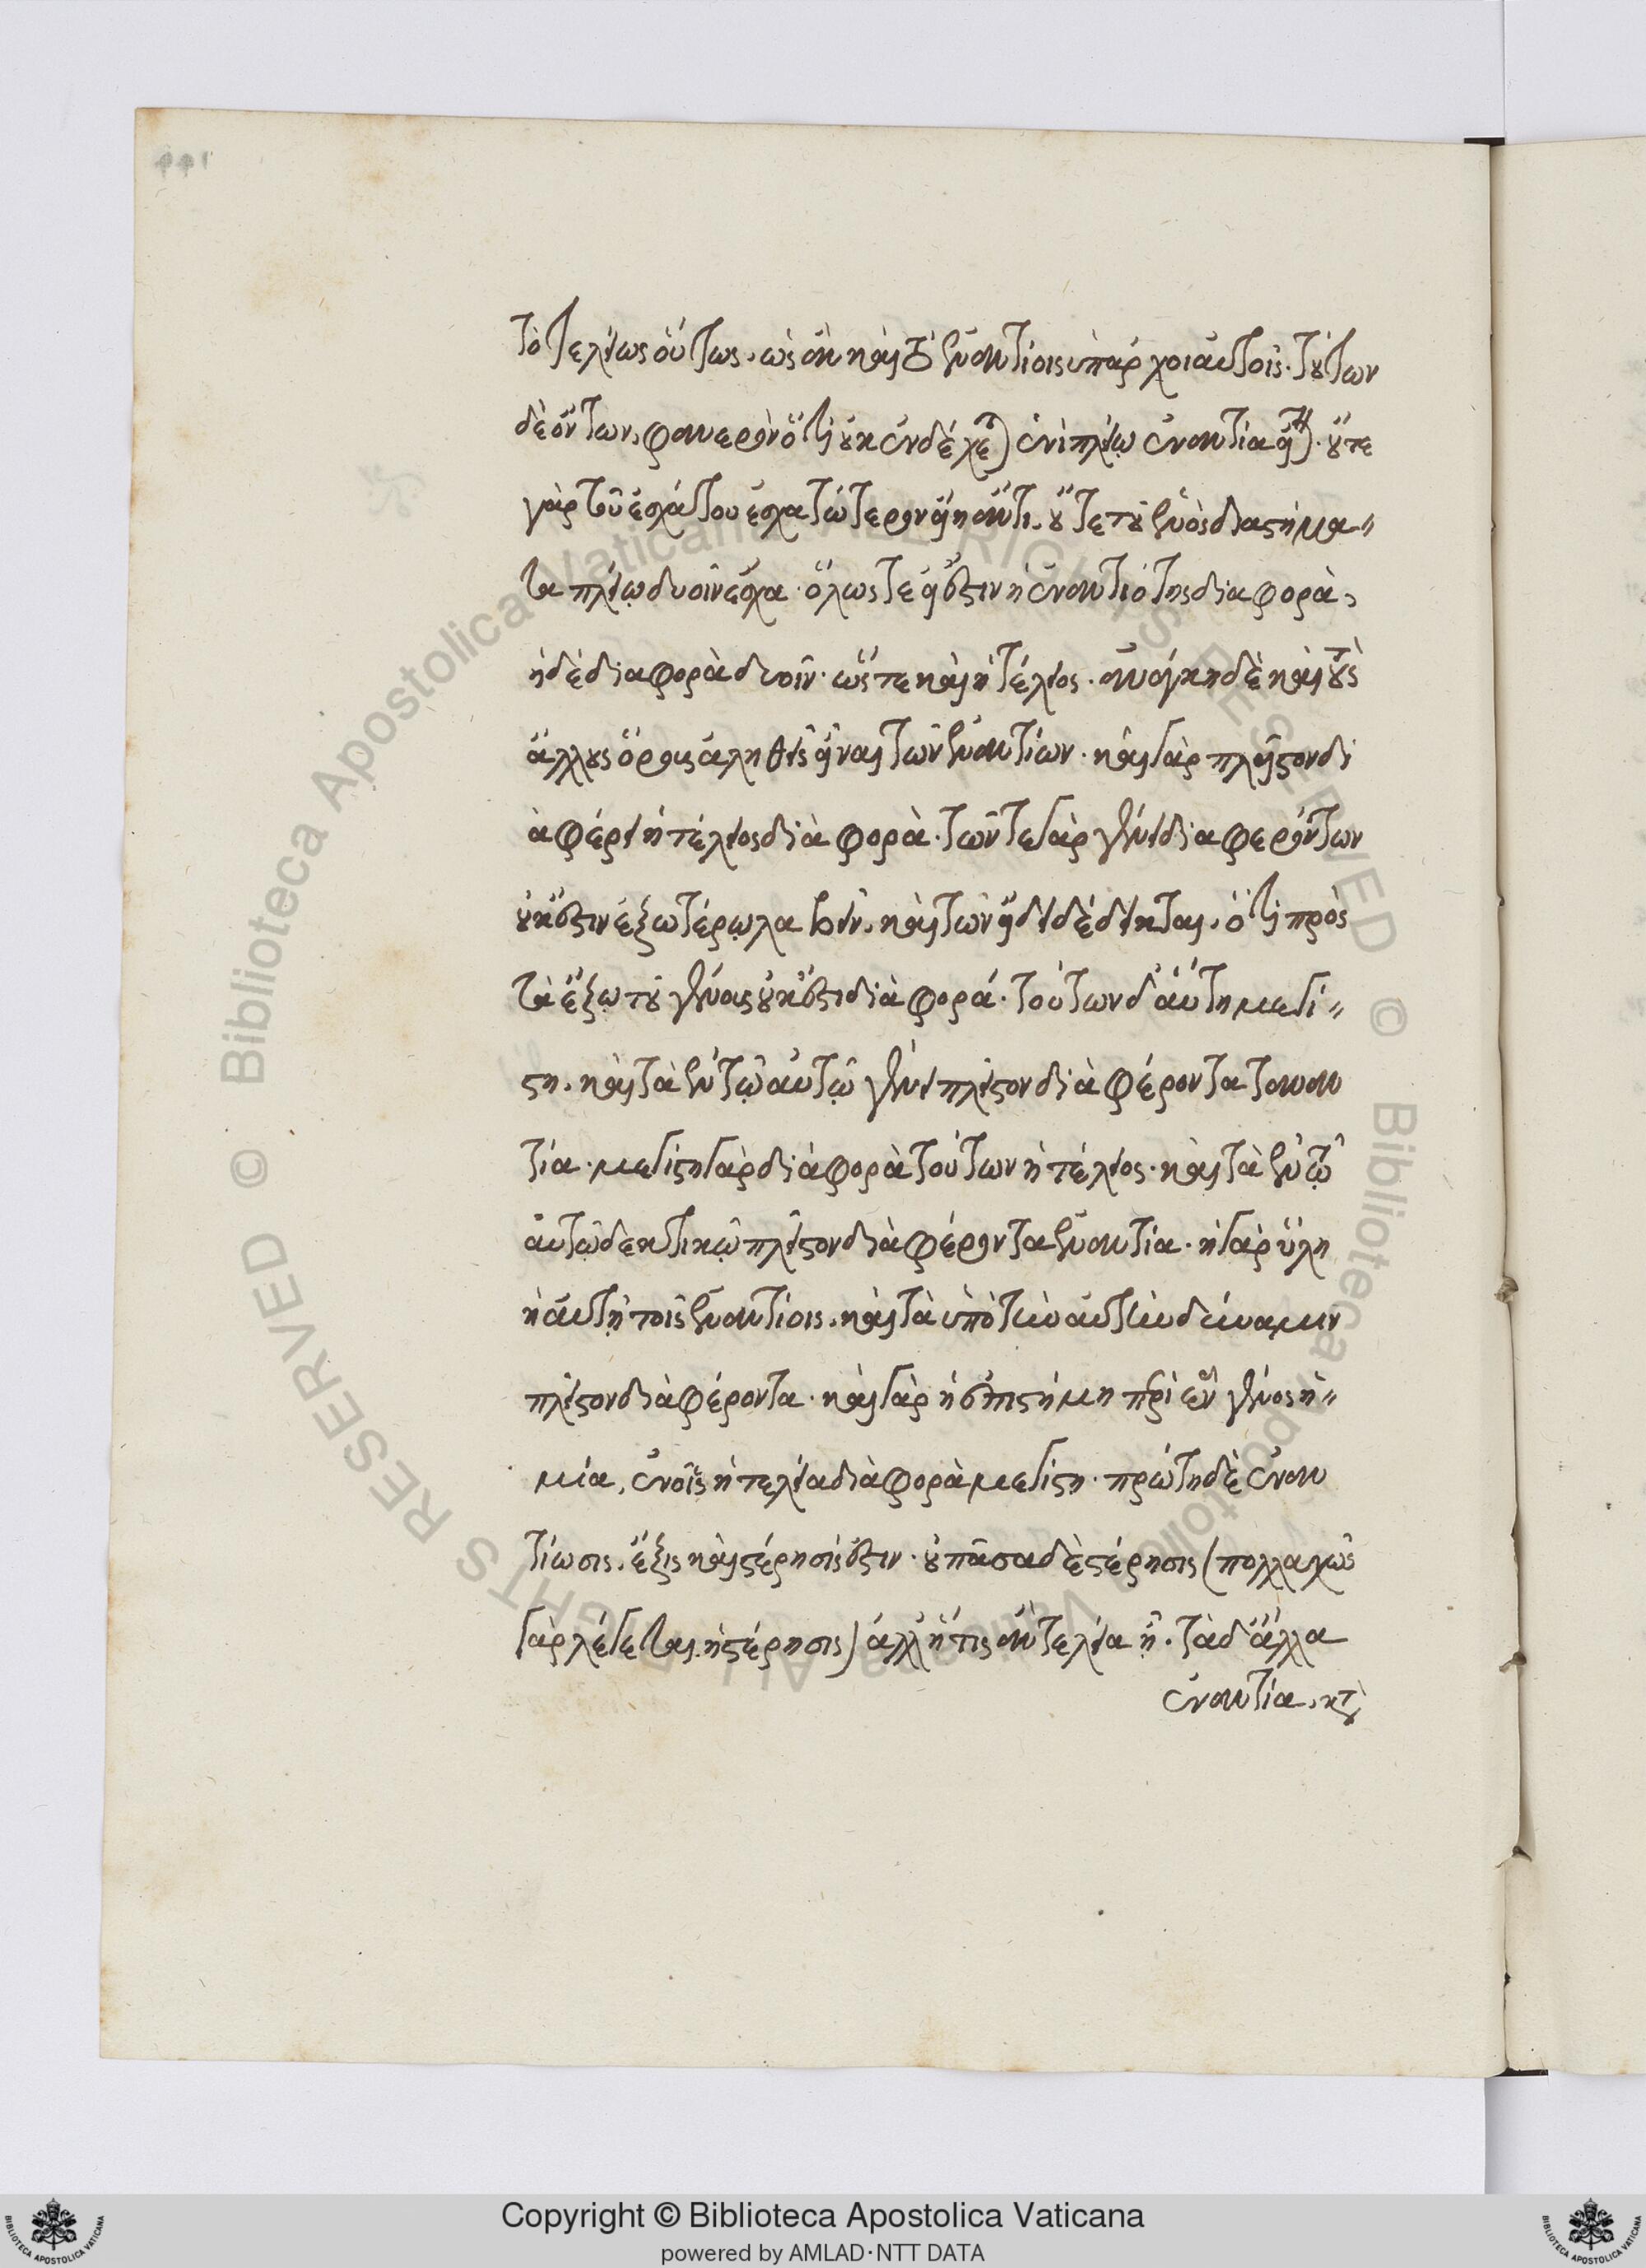 τὸ τελείως οὕτως, ὡς ἂν καὶ τὸ ἐναντίοις ὑπάρχοι αὐτοῖς. τούτων
δὲ ὄντων, φανερὸν ὅτι οὐκ ἐνδέχεται ἑνὶ πλείω ἐναντία εἶναι. οὔτε
γὰρ τοῦ ἐσχάτου ἐσχατώτερον εἴη ἄν τι. οὔτε τοῦ ἑνὸς διαστήμα〃
τα πλείω δυοῖν ἔσχατα. ὅλως τε εἰ ἔστιν ἡ ἐναντιότης διαφορὰ,
ἡ δὲ διαφορὰ δυοῖν. ὥστε καὶ ἡ τέλειος. ἀνάγκη δὲ καὶ τοὺς
ἄλλους ὅρους ἀληθεῖς εἶναι τῶν ἐναντίων. καὶ γὰρ πλεῖστον δι
αφέρει ἡ τέλειος διὰφορὰ. τῶν τε γὰρ γένει διαφερόντων
οὐκ ἔστιν ἐξωτέρω λαβεῖν. καὶ τῶν εἴδει δέδεικται, ὅτι πρὸς
τὰ ἔξω τοῦ γένους οὐκ ἔστι διὰφορά. τούτων δ' αὕτη μεγί〃
στη. καὶ τὰ ἐν τῷ αὐτῷ γένει πλεῖστον διὰφέροντα τἀναν
τία. μεγίστη γὰρ διάφορὰ τούτων ἡ τέλειος. καὶ τὰ ἐν τῷ
αὐτῷ δεκτικῷ πλεῖστον διὰφέροντα ἐναντία. ἡ γὰρ ὕλη
ἡ αὐτὴ τοῖς ἐναντίοις. καὶ τὰ ὑπὸ τὴν αὐτὴν δύναμιν
πλεῖστον διὰφέροντα. καὶ γὰρ ἡ ἐπιστήμη περὶ ἓν γένος ἡ〃
μία, ἐν οἷς ἡ τελεία διὰφορὰ μεγίστη. πρώτη δὲ ἐναν
τίωσις, ἕξις καὶ στέρησίς ἐστιν. οὐ πᾶσα δὲ στέρησις (πολλαχῶς
γὰρ λέγεται ἡ στέρησις) ἀλλ' ἥτις ἂν τελεία ᾖ. τὰ δ' ἄλλα
ἐναντία, κτ
Copyright © Biblioteca Apostolica Vaticana
powered by AMLAD·NTT DATA